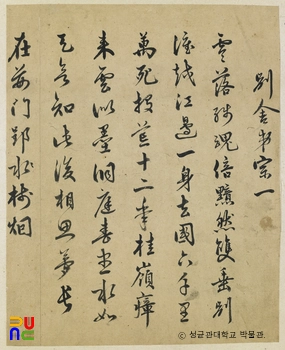 別舍弟宗一
零落殘魂倍黯然雙垂別
淚越江邊一身去國六千里
萬死投荒十二年桂嶺瘴
來雲似墨洞庭春盡水如
天欲知此後相思夢長
在荊门郢樹烟
© 성균관대학교 박물관